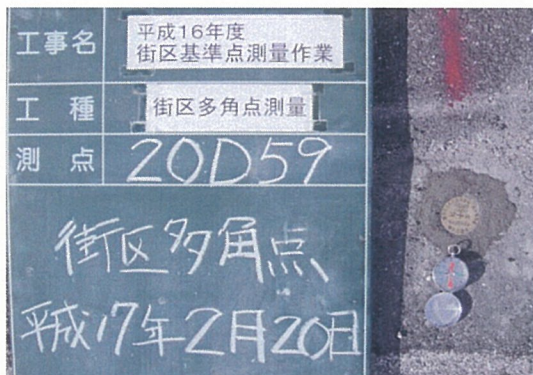 工事名
平成16年度
街区基準点測量作業
工種
街区多角点測量
測点
20D59
街区多角点
平成17年2月20日